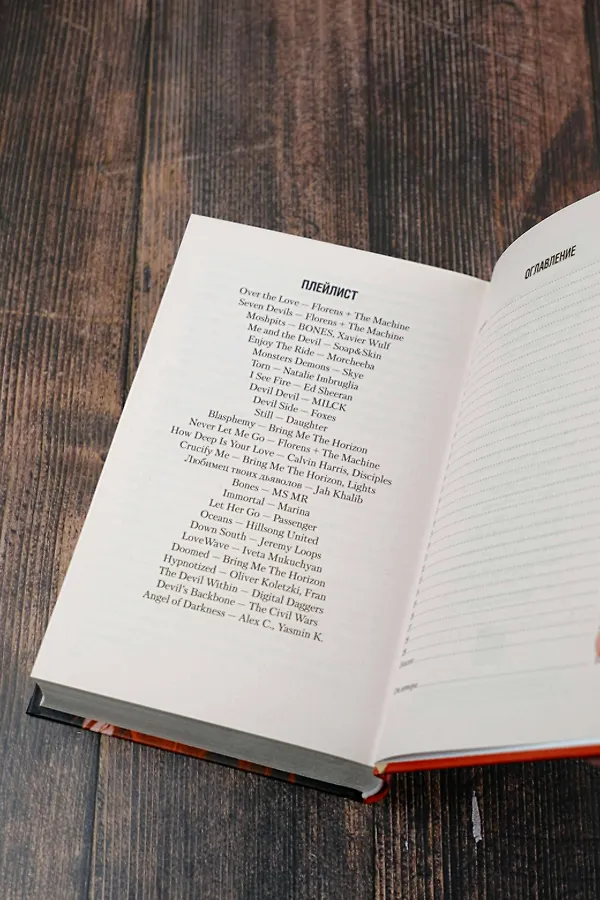 ПЛЕЙЛИСТ
Over the Love – Florens + The Machine
Seven Devils – Florens + The Machine
Moshpits – BONES, Xavier Wulf
Me and the Devil – Soap&Skin
Enjoy The Ride – Morcheeba
Monsters Demons – Skye
Torn – Natalie Imbruglia
I See Fire – Ed Sheeran
Devil Devil – MILCK
Devil Side – Foxes
Still – Daughter
Blasphemy – Bring Me The Horizon
Never Let Me Go – Florens + The Machine
How Deep Is Your Love – Calvin Harris, Disciples
Crucify Me – Bring Me The Horizon, Lights
Любимец твоих дьяволов – Jah Khalib
Bones – MS MR
Immortal – Marina
Let Her Go – Passenger
Oceans – Hillsong United
Down South – Jeremy Loops
LoveWave – Iveta Mukuchyan
Doomed – Bring Me The Horizon
Hypnotized – Oliver Koletzki, Fran
The Devil Within – Digital Daggers
Devil's Backbone – The Civil Wars
Angel of Darkness – Alex C., Yasmin K.
ОГЛАВЛЕНИЕ
От автора